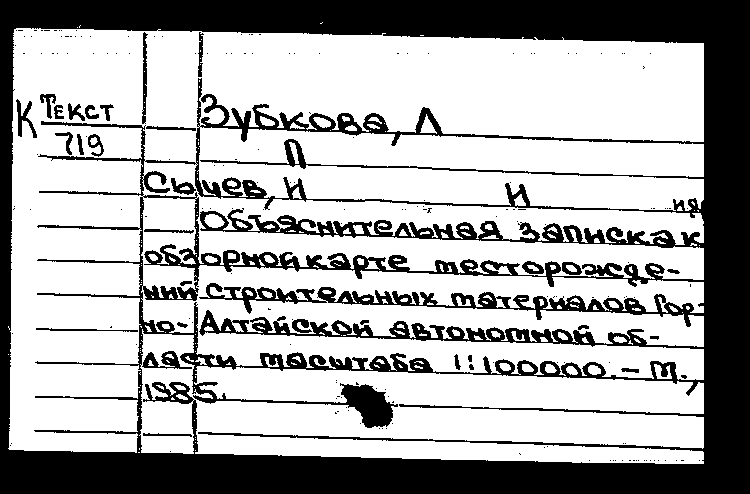 К Текст Зубкова, Л
719 П
Сычев, И И
Объяснительная записка к
обзорной карте месторожде-
ний строительных материалов Гор-
но-Алтайской автономной об-
ласти масштаба 1:100000. – М.,
1985.